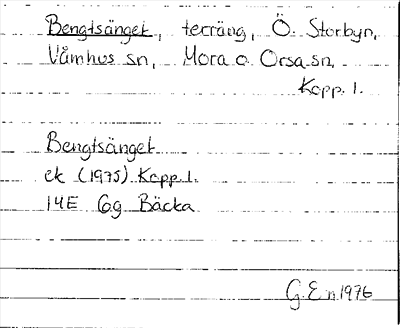 Bengtsänget, terräng, Ö. Storbyn,
Våmhus sn, Mora o. Orsa sn,
Kopp. l.
Bengtsänget
ek (1975) Kopp. l.
14E 6g Bäcka
G. E-n 1976